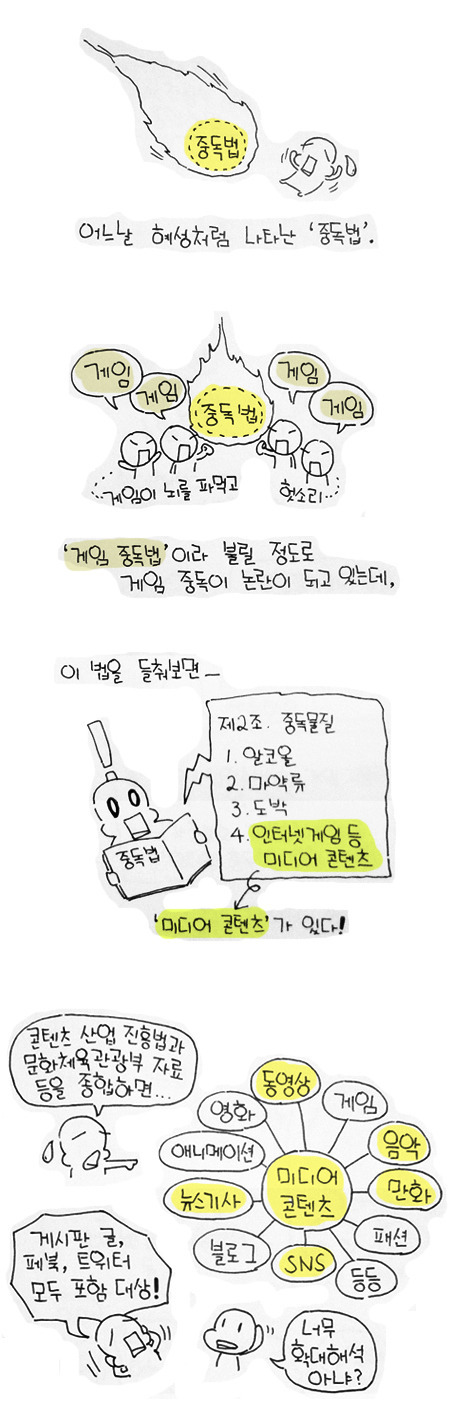 중독법
어느날 혜성처럼 나타난 '중독법'.
게임
게임
중독법
게임
게임
게임이 뇌를 파먹고
헛소리…
'게임 중독법'이라 불릴 정도로
게임 중독이 논란이 되고 있는데,
이 법을 들춰보면_
제2조. 중독물질
1. 알코올
2. 마약류
3. 도박
4. 인터넷게임 등
미디어 콘텐츠
중독법
'미디어 콘텐츠'가 있다!
콘텐츠 산업 진흥법과
문화체육관광부 자료
등을 종합하면...
동영상
영화
게임
애니메이션
음악
미디어
콘텐츠
뉴스기사
만화
블로그
패션
SNS
등등
게시판 글,
페북, 트위터
모두 포함 대상!
너무
확대해석
아냐?